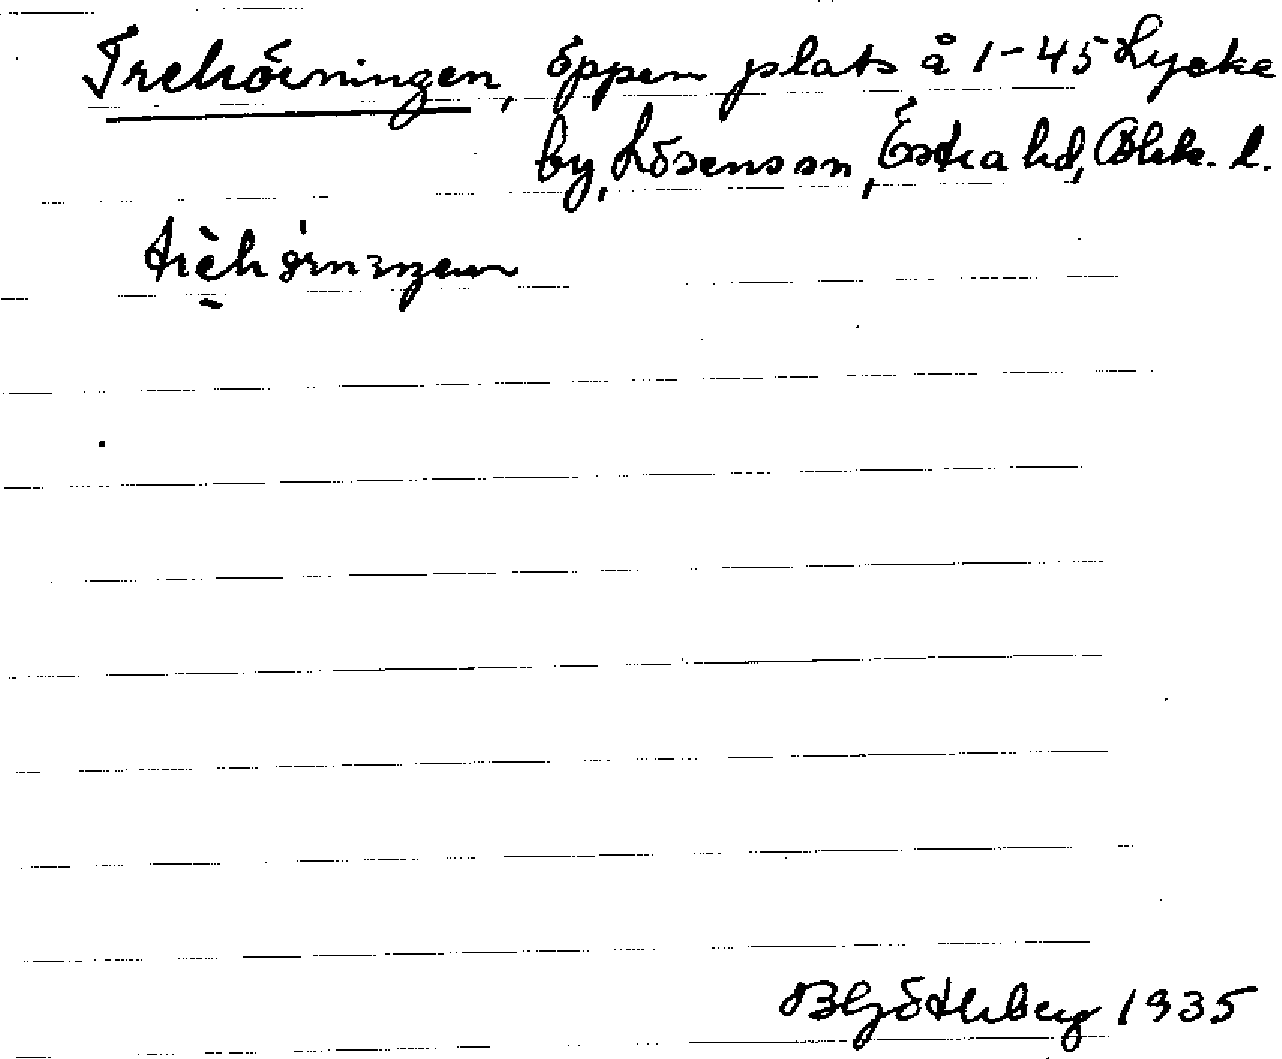 Trehörningen, öppen plats å 1-45 Lycke
by, Lösens sn, Östra hd, Blek. l.
trèhörningen
B Göthberg 1935